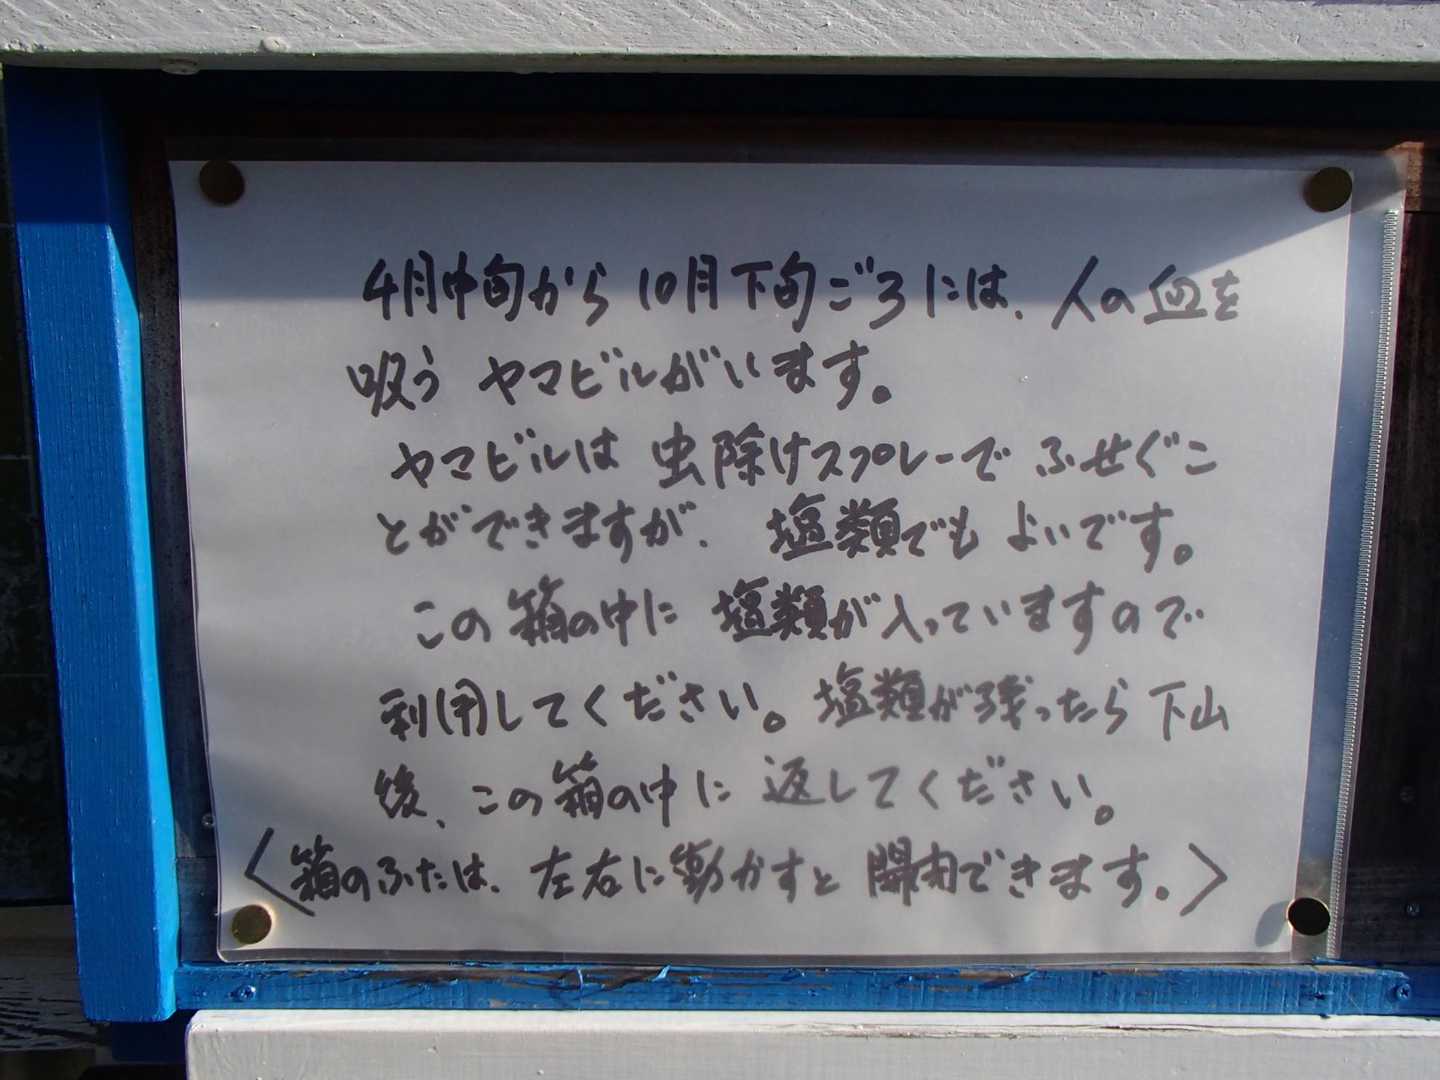 4月中旬から10月下旬ごろには、人の血を
吸うヤマビルがいます。
ヤマビルは虫除けスプレーでふせぐこ
とができますが、塩類でもよいです。
この箱の中に塩類が入っていますので
利用してください。塩類が残ったら下山
後、この箱の中に返してください。
〈箱のふたは、左右に動かすと開閉できます。〉